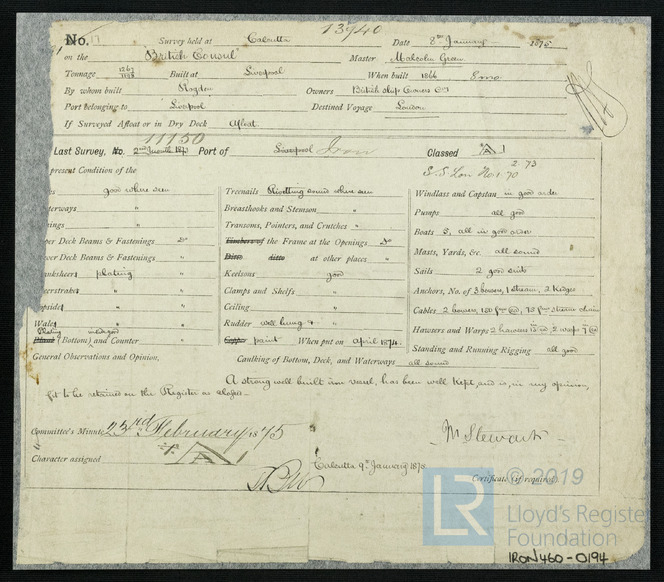 13940
No. 19 Survey held at Calcutta Date 8th January 1875
on the British Consul Master Malcolm Graw
Tonnage 1267 Built at Liverpool When built 1866
1198
By whom built Royden Owners British Ship Owners Co
Port belonging to Liverpool Destined Voyage London
If Surveyed Afloat or in Dry Dock Afloat
11150
Last Survey, No. Port of Liverpool Iron Classed A 1
2.73
S.S Lon No 1 70
present Condition of the
good where seen Treenails Rivetting sound where seen Windlass and Capstan in good order
terways " Breasthooks and Stemson " Pumps all good
nings " Transoms, Pointers, and Crutches " Boats 3, all in good order
per Deck Beams & Fastenings Do Timbers of the Frame at the Openings Do Masts, Yards, &c. all sound
wer Deck Beams & Fastenings " Ditto ditto at other places " Sails 2 good suits
anksheers plating Keelsons good Anchors, No. of 3 bowers, 1 stream, 2 kedges
eerstrakes " " Clamps and Shelfs " Cables 2 bowers, 150 fms
opsides " " Ceiling " Hawsers and Warps 2 hawsers
Wales " " Rudder well hung & " Standing and Running Rigging all good
Plating
Plank (Bottom) and Counter " Copper paint When put on April 1874.
General Observations and Opinion, Caulking of Bottom, Deck, and Waterways all sound
A strong well built iron vessel, has been well kept, and is, in my opinion,
fit to be retained on the Register as classed
Committee's Minute 23rd February 1875
M Stewart
A 1
Character assigned
Calcutta 9th January 1875
Certificate (if required)
LR © 2019
Lloyd's Register
Foundation
IRON460-0194